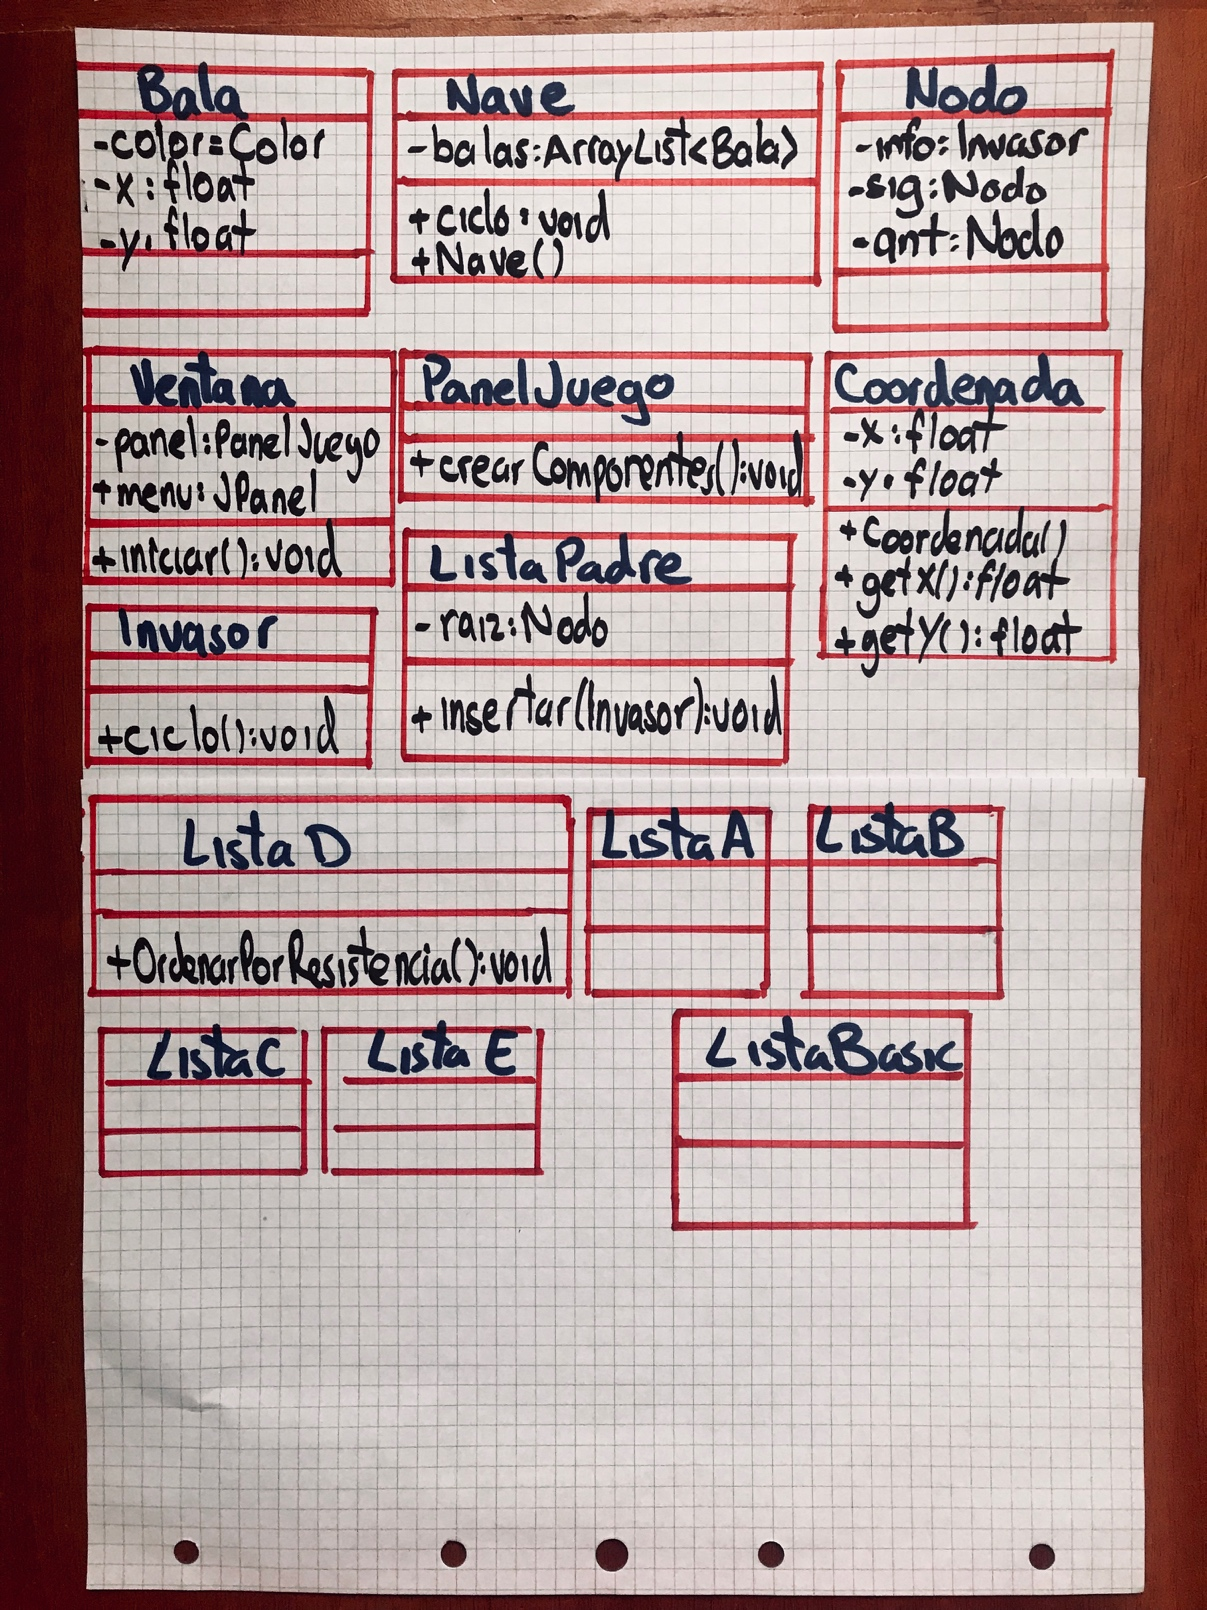 Bala
-color=Color
-x:float
-y.float
Nave
-balas:ArrayList<Bala>
+ciclo:void
+Nave()
Nodo
-info:Invasor
-sig:Nodo
-ant:Nodo
Ventana
-panel:PanelJuego
+menu:JPanel
+iniciar():void
PanelJuego
+crearComponentes():void
Coordenada
-x:float
-y.float
+Coordenada()
+getX():float
+getY():float
ListaPadre
-raiz:Nodo
+insertar(Invasor):void
Invasor
+ciclo():void
ListaD
+OrdenarPorResistencia():void
ListaA
ListaB
ListaC
ListaE
ListaBasic